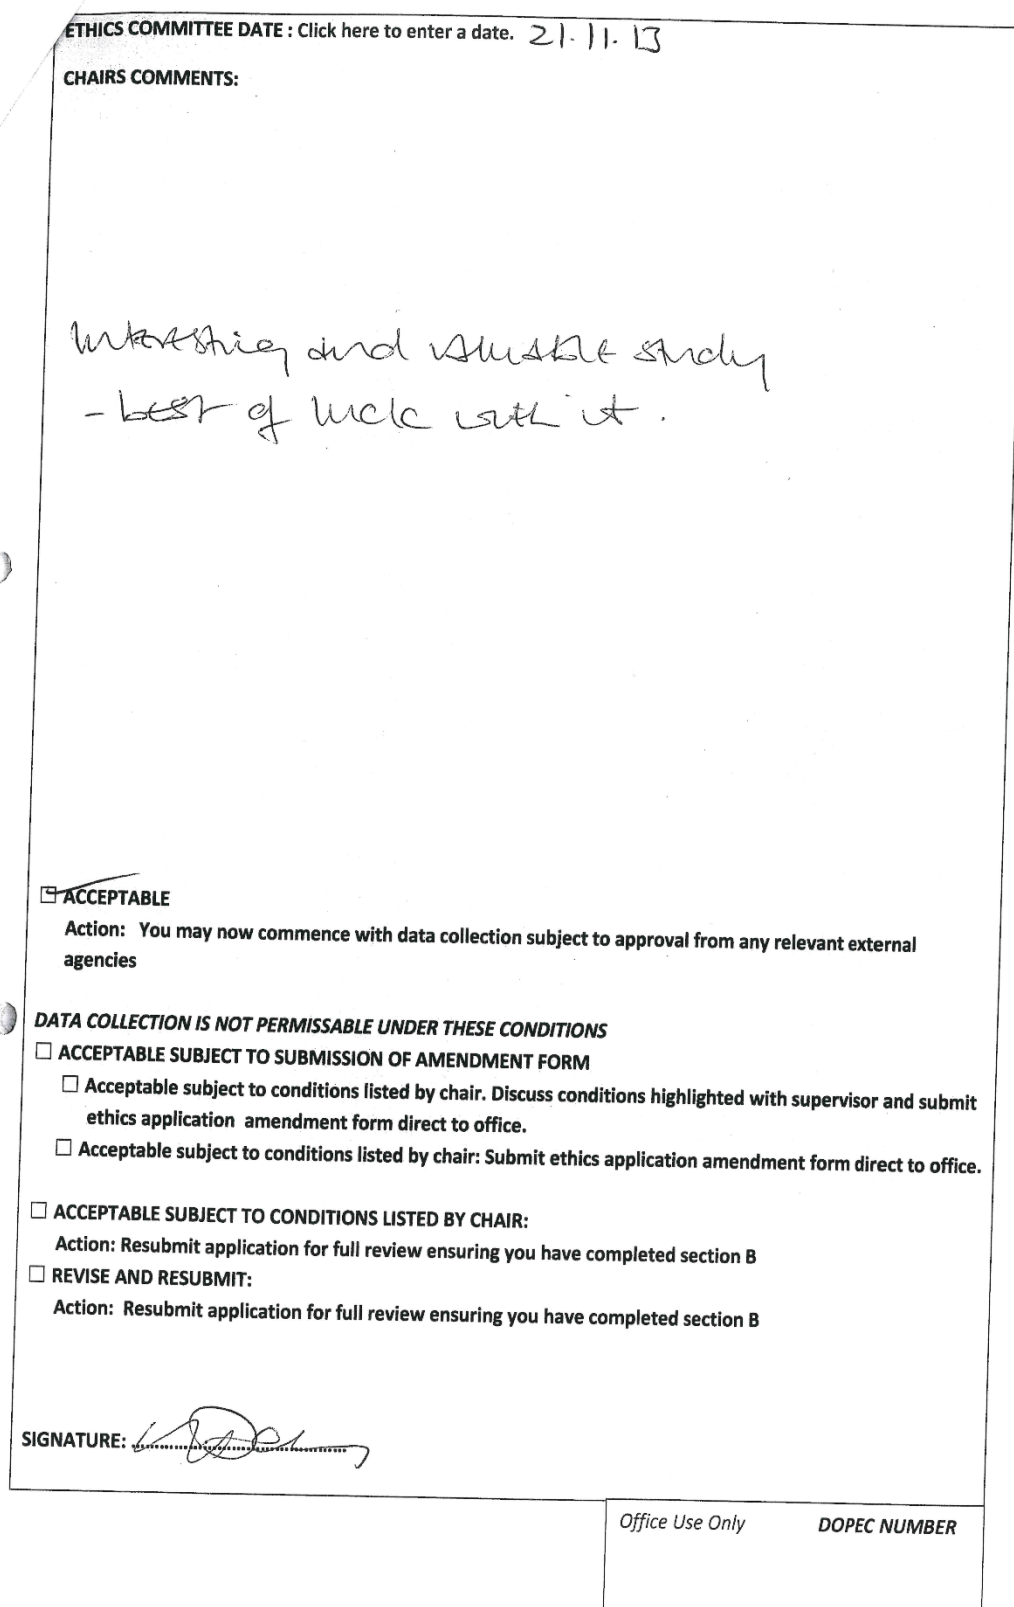 ETHICS COMMITTEE DATE : Click here to enter a date. 21.11.13
CHAIRS COMMENTS:
Interesting and valuable study
- best of luck with it.
ACCEPTABLE
Action: You may now commence with data collection subject to approval from any relevant external
agencies
DATA COLLECTION IS NOT PERMISSABLE UNDER THESE CONDITIONS
☐ ACCEPTABLE SUBJECT TO SUBMISSION OF AMENDMENT FORM
☐ Acceptable subject to conditions listed by chair. Discuss conditions highlighted with supervisor and submit
ethics application amendment form direct to office.
☐ Acceptable subject to conditions listed by chair: Submit ethics application amendment form direct to office.
☐ ACCEPTABLE SUBJECT TO CONDITIONS LISTED BY CHAIR:
Action: Resubmit application for full review ensuring you have completed section B
☐ REVISE AND RESUBMIT:
Action: Resubmit application for full review ensuring you have completed section B
SIGNATURE:
Office Use Only DOPEC NUMBER